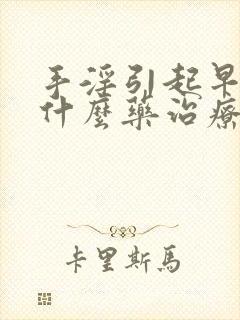 手淫引起早
什麼藥治療
卡里斯馬